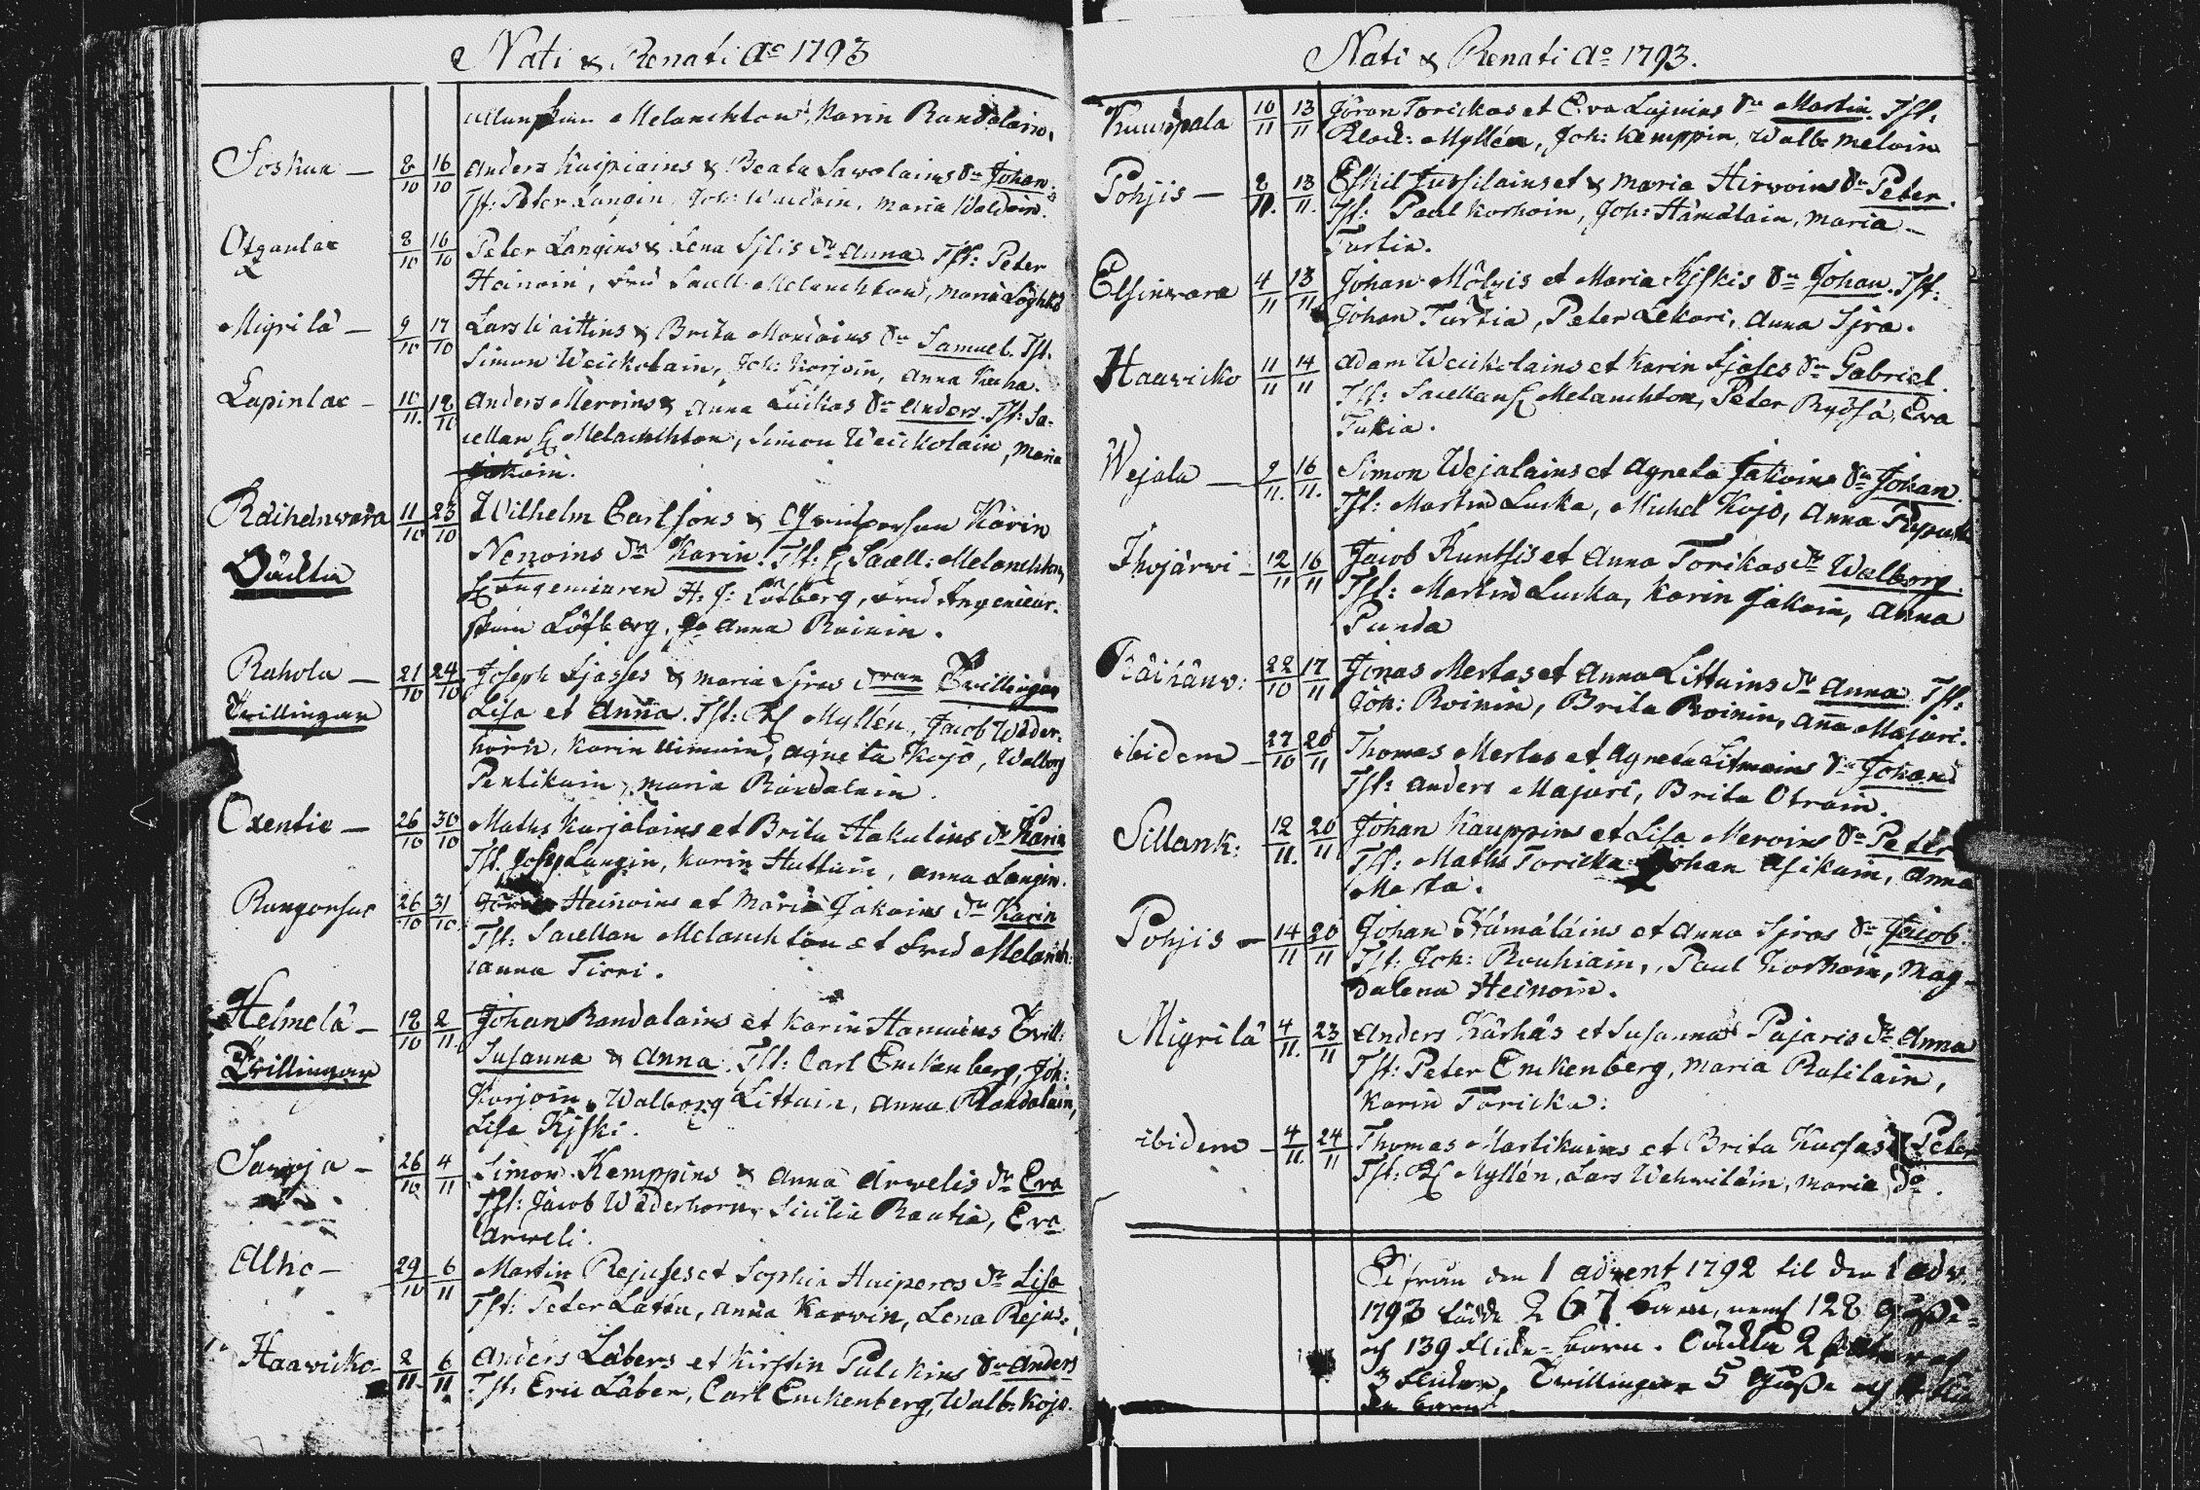 Nati & Renati Ao 1793
Melanchton, Karin Randalain,
Soskua — 8/10 16/10 Anders Kuipiains & Beata Sawolains Sn Johan.
Tst: Peter Langin, Joh: Waldoin, Maria Waldoin.
8/10 16/10 Peter Langins & Lena Sjlis Dr Anna. Tst: Peter
Heinoin, Melanchton, Maria
Migrilä — 9/10 17/10 Lars Waittins & Brita Sn Samuel. Tst.
Simon Weickolain, Joh: Korjoin, Anna Kuha.
Lapinlax — 10/11. 12/11 Anders Meroins & Anna Luckas Sn Anders. Tst: Sa-
cellan H. Melanchton, Simon Weickolain, Maria
Jakoin.
Räihänwara 11/10 23/10 Wilhelm Carlsons & Qwinspersun Karin
Oäckta
Nenoins Dr Karin. Tst: H. Sacell: Melanchton,
H. Ingenieuren H. J: Löfberg, Frud Ingenieur-
skan Löfberg, Anna Roinin.
Rahola — 21/10 24/10 Joseph Sjasses & Maria Sjras Tvillingar
Tvillingar
Lisa et Anna. Tst: Myllén, Jacob Wäder-
horn, Karin Ainuin, Agneta Kojo, Walborg
Pentikain, Maria Randalain.
Oxentie — 26/10 30/10 Maths Karjalains et Brita Hakulins Dr Karin
Tst. Joseph Langin, Karin Huttuin, Anna Langin.
26/10 31/10. Heinoins et Maria Jakoins Dr Karin
Tst: Sacellan Melanchton et Frud Melanch:
Anna Tirri.
Helmelä — 18/10 2/11. Johan Randalains et Karin Hamuins Tvill:
Tvillingar
Susanna & Anna. Tst: Carl Enckenberg, Joh:
Karjoin, Walborg Littuin, Anna Randalain,
Lisa Kjski.
26/10 4/11 Simon Kemppins & Anna Arwelis Dr Eva
Tst: Jacob Wäderhorn, Sicilia Rautia, Eva
Arweli.
Alho — 29/10 6/11 Martin Rejuses et Sophia Huiperos Dr Lisa
Tst: Peter Latin, Anna Karvin, Lena Rejus.
Haawicko 2/11 6/11 Anders Läbers et Kirstin Pulckins Sn Anders
Tst: Eric Läber, Carl Enckenberg, Walb: Kojo.
Nati & Renati Ao 1793.
Kuuspala 10/11 13/11 Jöran Torickas et Eva Lajuins Sn Martin. Tst.
Myllén, Joh: Kemppin, Walb: Meloin
Pohjis — 8/11. 13/11. Eskil Jussilains et & Maria Hirwoins Sn Peter.
Tst: Paul Korhoin, Joh: Hämäläin, Maria
Turtia.
Elsinwara 4/11 13/11 Johan Mölsis et Maria Kjskis Sn Johan. Tst:
Johan Turtia, Peter Lekari, Anna Sjra.
Haawicko 11/11 14/11 Adam Weickolains et Karin Sjases Sn Gabriel.
Tst: Sacellan H Melanchton, Peter Ryösä, Eva
Tukia.
Wejala — 9/11. 16/11. Simon Wejalains et Agneta Jakoins Sn Johan.
Tst: Martin Lucka, Michel Kojo, Anna
Ihojärwi — 12/11 16/11 Jacob Runtsis et Anna Torikas Dr Walborg.
Tst: Martin Lucka, Karin Jakoin, Anna
Punda
Räihänw: 22/10 17/11 Jonas Mertas et Anna Littuins Dr Anna. Tst:
Joh: Roinin, Brita Roinin, Anna Majuri.
ibidem — 27/10 20/11 Thomas Mertas et Agneta Litmains Sn Johan
Tst: Anders Majuri, Brita Otrain.
Sillank: 12/11. 20/11 Johan Kauppins et Lisa Meroins Sn Peter
Tst: Maths Toricka, Johan Asikain, Anna
Merta.
Pohjis — 14/11 20/11 Johan Hämäläins et Anna Sjras Sn Jacob.
Tst: Joh: Rouhiain, Paul Korhoin, Mag-
dalena Heinoin.
Migrilä 4/11. 23/11 Anders Kärhäs et Susanna Pajaris Dr Anna
Tst: Peter Enkenberg, Maria Ratilain,
Karin Toricka:
ibidem — 4/11. 24/11 Thomas Martikains et Brita Kucsas Peter
Tst: Myllén, Lars Wehwiläin, Maria Do.
ifrån den 1 advent 1792 til den 1 adv:
1793 födde 267 barn, neml 128 Gosse-
och 139 flicke-barn. Oäckta 2
3 flickor, Tvillingar 5 Gosse och
barn.